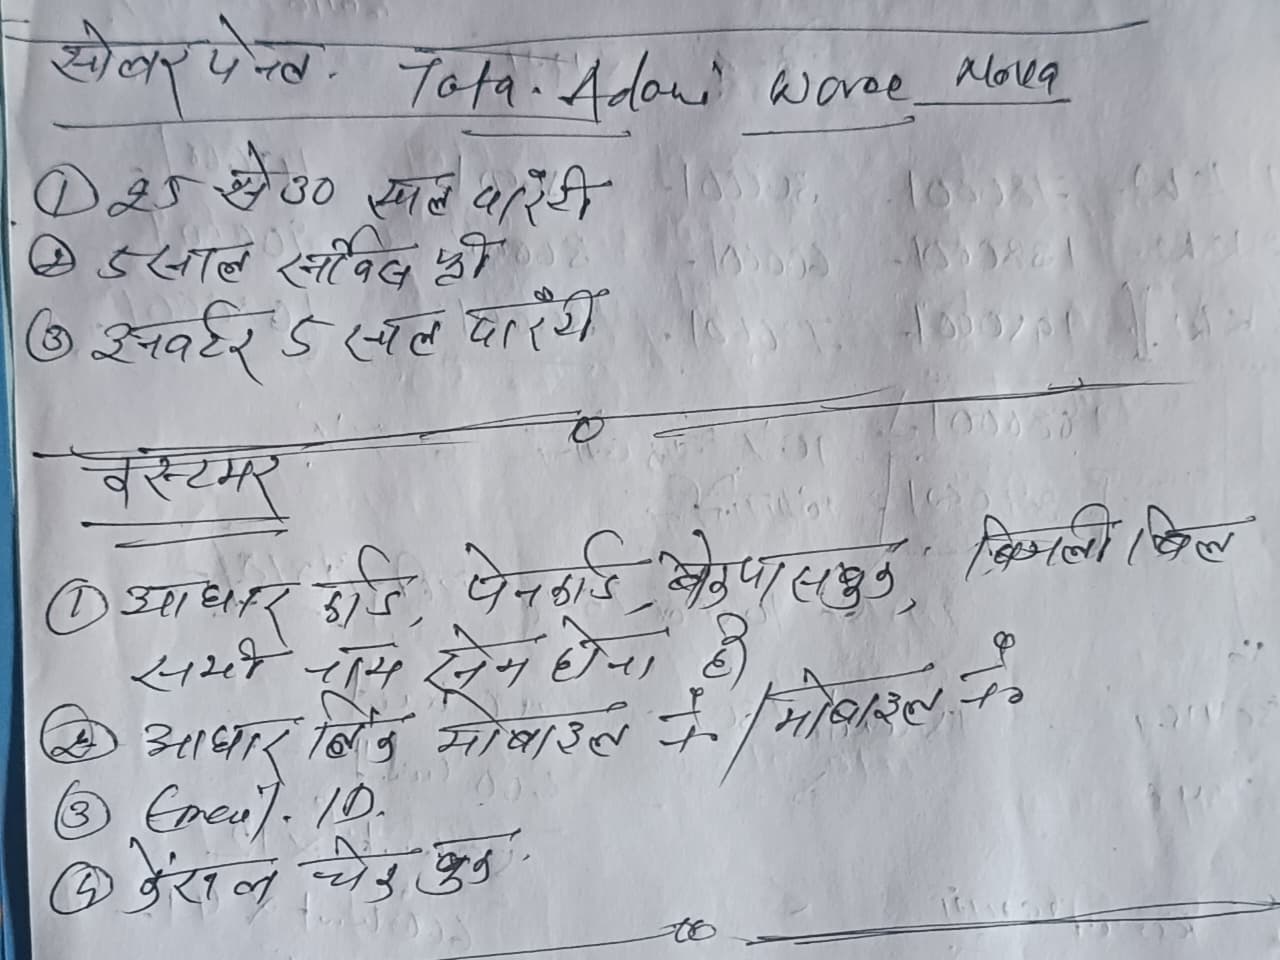 सोलर पेनल. Tata. Adani Waree
① 25 से 30 साल वारंटी
② 5 साल सर्विस फ्री
③ इनवर्टर 5 साल वारंटी
कस्टमर
① आधार कार्ड, पेनकार्ड, बैंकपासबुक, बिजली बिल
सभी नाम सेम होना है
② आधार लिंक मोबाइल नं / मोबाइल नं॰
③ Email. ID.
④ केंसल चेक बुक.